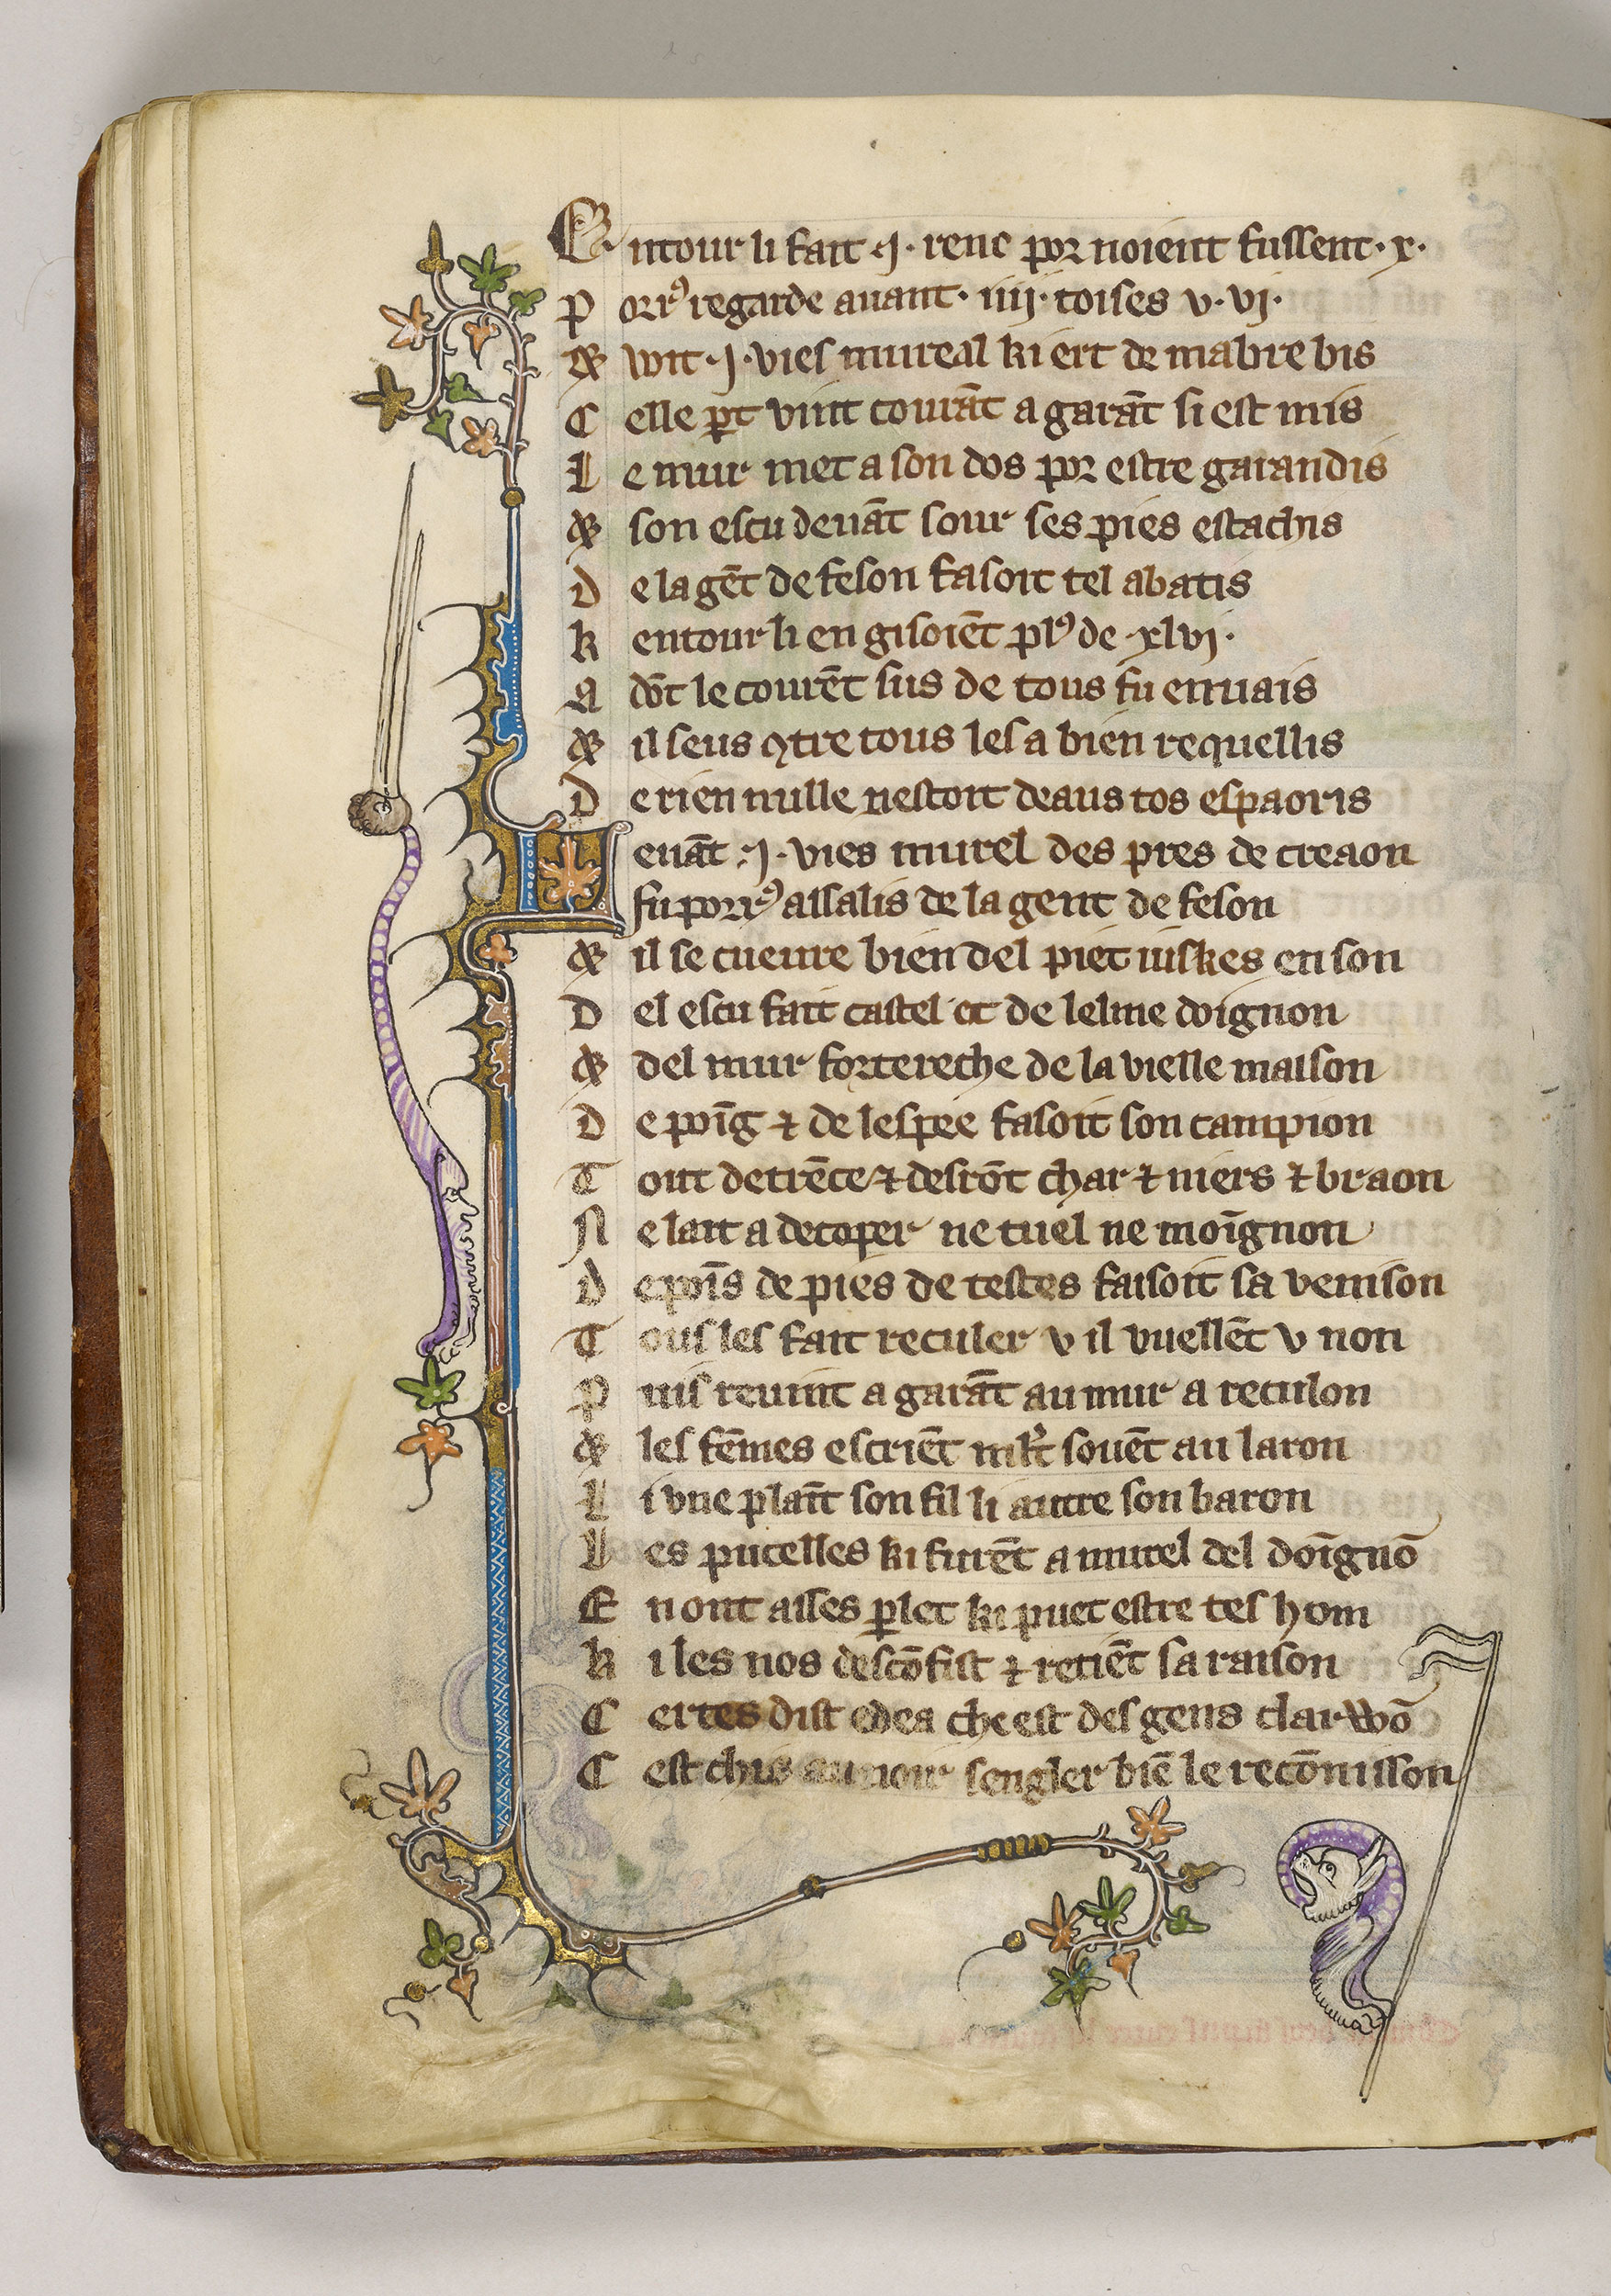 E ntour li fait .j. renc por noient fussent .x.
P orrꝰ regarde auant .iiij. toises v. vj.
⁊ voit .j. vies mureal ki ert de mabre bis
C elle ꝑt vint courāt a garāt si est mis
L e mur met a son dos por estre garandis
⁊ son escu deuāt sour ses pies estachis
D e la gēt de feson fasoit tel abatis
K entour li en gisoiēt plꝰ de .xlvj.
A dōt le courēt sus de tous fu enuais
⁊ il seus ꝯtre tous les a bien requellis
D e rien nulle nestoit deaus tos espaoris
D euāt .j. vies murel des pres de creaon
fu porrꝰ assalis de la gent de feson
⁊ il se cueure bien del piet iuskes en son
D el escu fait castel et de lelme doignon
⁊ del mur fortereche de la vielle maison
D e poīg ⁊ de lespee fasoit son campion
T out detrēce ⁊ desrōt char ⁊ niers ⁊ braon
N e lait a decoper ne tuel ne moīgnon
D e poīs de pies de testes faisoit sa venison
T ous les fait reculer v il vuellēt v non
P uis reuint a garāt au mur a reculon
⁊ les fēmes escriēt souēt au laron
L i vne plaīt son fil li autre son baron
L es pucelles ki furēt a murel del doīgnō
E n ont asses ꝑlet ki puet estre tes hom
K i les nos descōfist ⁊ retiēt sa raison
C ertes dist edea che est des gens clarvvō
C est chis au noir sengler biē le recōnisson